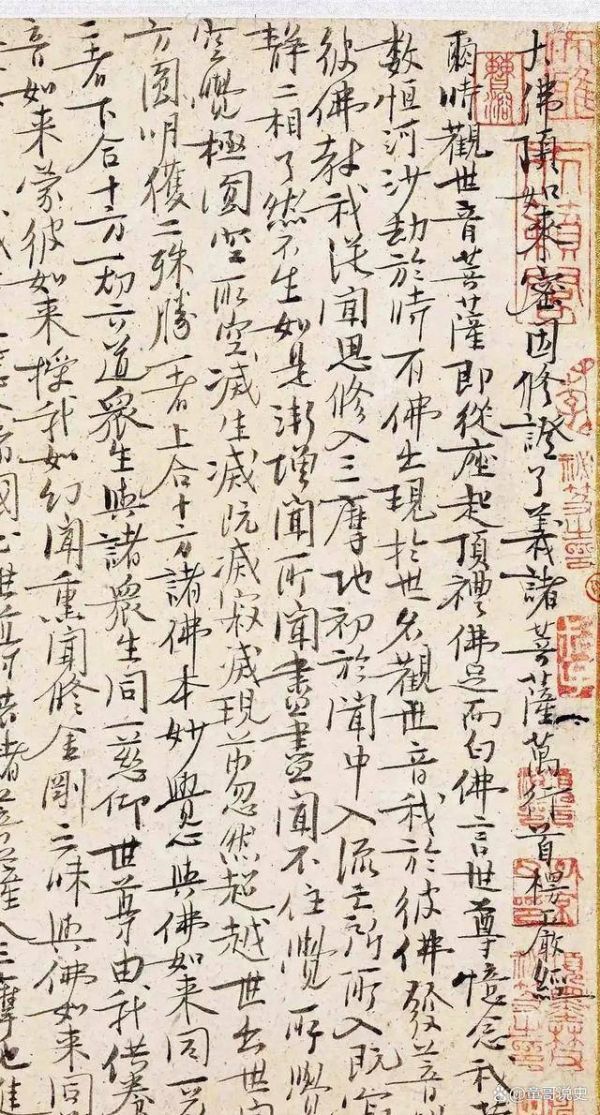 大佛頂如來密因修證了義諸菩薩萬行首楞嚴經
爾時觀世音菩薩即從座起頂禮佛足而白佛言世尊憶念我
數恒河沙劫於時有佛出現於世名觀世音我於彼佛發菩
彼佛教我從聞思修入三摩地初於聞中入流亡所所入既寂
靜二相了然不生如是漸增聞所聞盡盡聞不住覺所覺
空覺極圓空所空滅生滅既滅寂滅現前忽然超越世出世
方圓明獲二殊勝一者上合十方諸佛本妙覺心與佛如來同一
二者下合十方一切六道眾生與諸眾生同一慈仰世尊由我供養
音如來蒙彼如來授我如幻聞熏聞修金剛三昧與佛如來同
國土世尊若諸菩薩入三摩地進